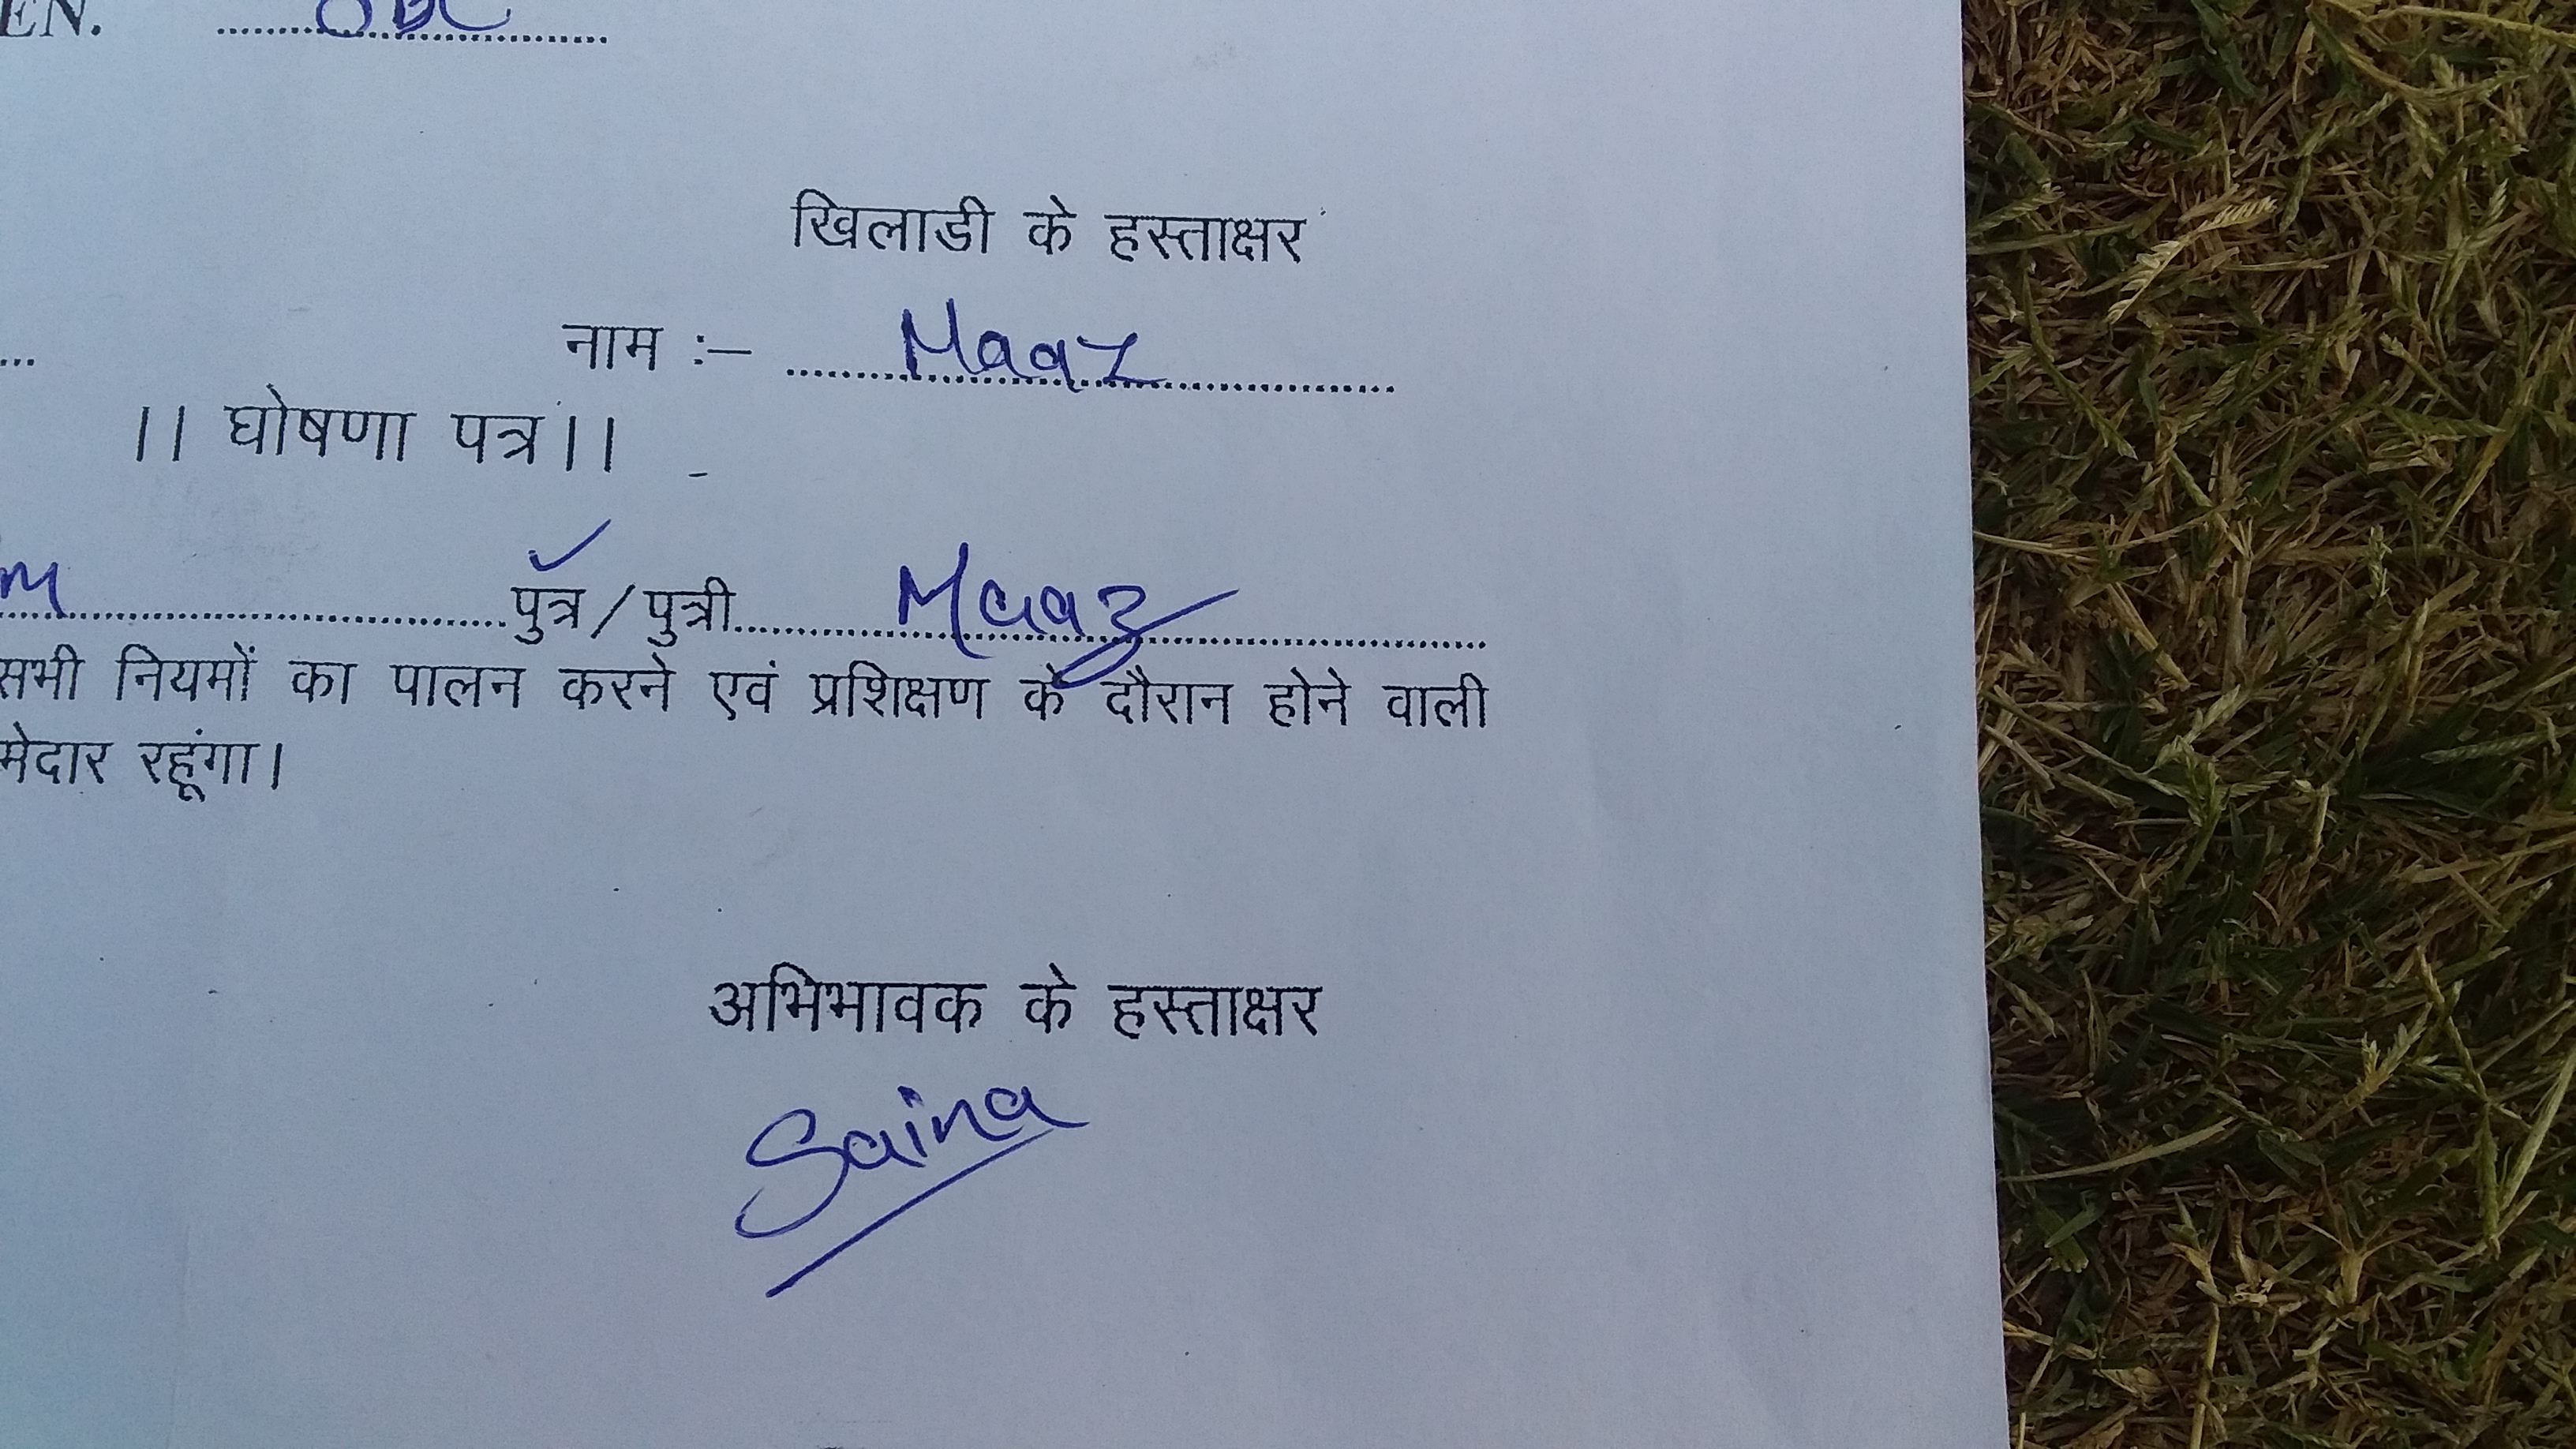 EN. OBC
खिलाडी के हस्ताक्षर
नाम :– Maaz
।। घोषणा पत्र।।
पुत्र/पुत्री Maaz
सभी नियमों का पालन करने एवं प्रशिक्षण के दौरान होने वाली
मेदार रहूंगा।
अभिभावक के हस्ताक्षर
Saina